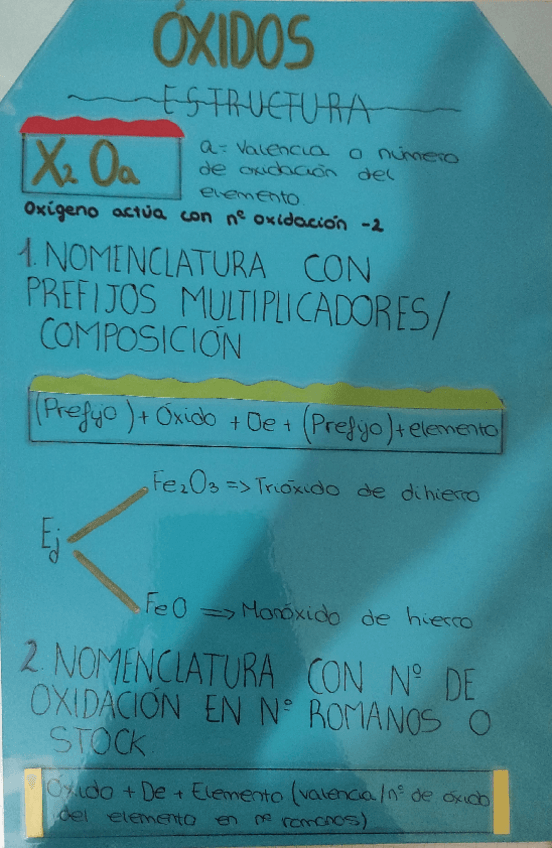 ÓXIDOS
ESTRUCTURA
X₂Oa
a = Valencia o número
de oxidación del
elemento
Oxígeno actúa con nº oxidación -2
1. NOMENCLATURA CON
PREFIJOS MULTIPLICADORES/
COMPOSICIÓN
(Prefijo) + Óxido + De + (Prefijo) + elemento
Fe₂O₃ => Trióxido de dihierro
Ej
FeO => Monóxido de hierro
2. NOMENCLATURA CON Nº DE
OXIDACIÓN EN Nº ROMANOS O
STOCK
Óxido + De + Elemento (valencia/nº de óxido
del elemento en nº romanos)